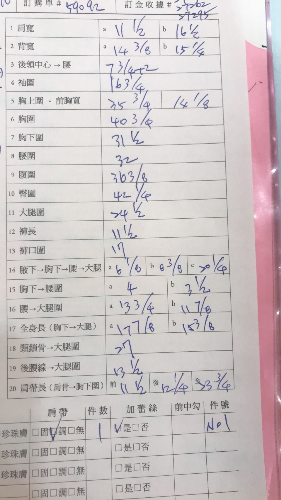 訂購單# 59092 訂金收據#
1 肩寬 a 11 1/2 b 16 1/2
2 背寬 a 14 3/8 b 15 1/4
3 後領中心→腰 7 3/4+2
4 袖圍 16 3/4
5 胸上圍‧前胸寬 35 3/4 14 1/8
6 胸圍 40 3/4
7 胸下圍 31 1/2
8 腰圍 32
9 腹圍 36 3/8
10 臀圍 42 1/4
11 大腿圍 24 1/2
12 褲長 11 1/2
13 褲口圍 17
14 腋下→胸下→腰→大腿 a 6 1/8 b 8 3/8 c 20 1/4
15 胸下→腰圍 a 4 b 3 1/2
16 腰→大腿圍 a 13 3/4 b 11 7/8
17 全身長(胸下→大腿) a 17 7/8 b 15 3/8
18 頸鎖骨→大腿圍 27
19 後腰線→大腿圍 13 1/2
20 肩帶長(肩骨→胸下圍) 前 11 1/2 後 12 1/4 全 23 3/4
肩帶 件數 加蕾絲 前中勾 件號
珍珠膚 □固□調□無 1 □是□否 No1
珍珠膚 □固□調□無 □是□否
珍珠膚 □固□調□無 □是□否
□固□調□無 □是□否